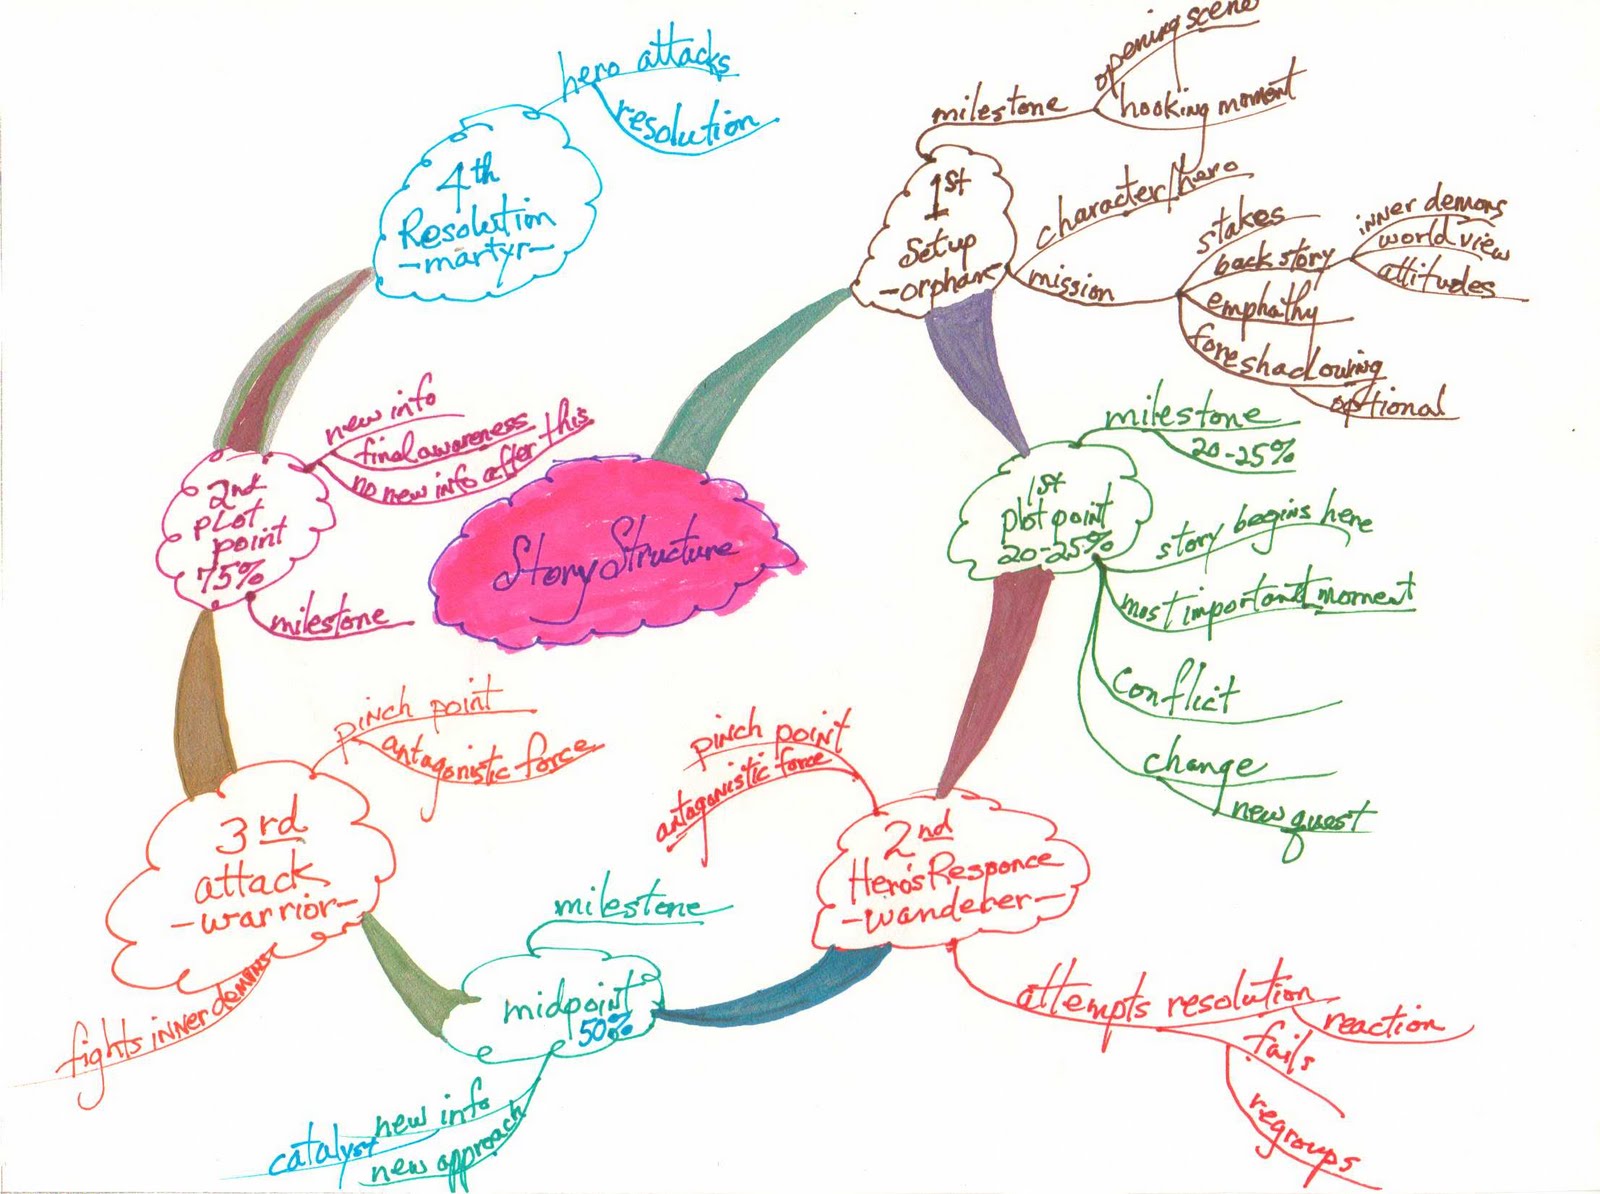 Story Structure
1st
Setup
-orphan-
milestone
opening scene
hooking moment
character/hero
mission
stakes
back story
inner demons
world view
attitudes
emphathy
foreshadowing
optional
1st
plot point
20-25%
milestone
20-25%
story begins here
most important moment
conflict
change
new quest
2nd
Hero's Responce
-wanderer-
pinch point
antagonistic force
attempts resolution
reaction
fails
regroups
midpoint
50%
milestone
new info
catalyst
new approach
3rd
attack
-warrior-
pinch point
antagonistic force
fights inner demons
2nd
plot
point
75%
new info
final awareness
no new info after this
milestone
4th
Resolution
-martyr-
hero attacks
resolution